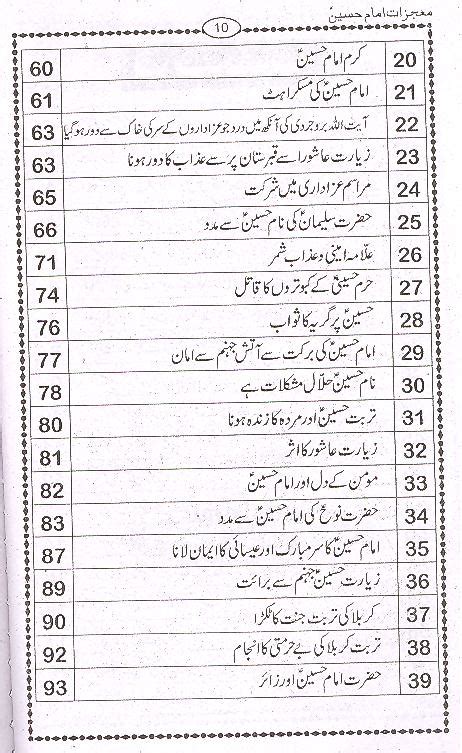 معجزات امام حسینؑ
10
20 کرم امام حسینؑ 60
21 امام حسینؑ کی مسکراہٹ 61
22 آیت اللہ بروجردی کی آنکھ میں درد جو عزاداروں کے سر کی خاک سے دور ہو گیا 63
23 زیارت عاشورا سے قبرستان پر سے عذاب کا دور ہونا 63
24 مراسم عزاداری میں شرکت 65
25 حضرت سلیمانؑ کی نام حسینؑ سے مدد 66
26 علامہ امینی و عذاب شمر 71
27 حرم حسینیؑ کے کبوتروں کا قاتل 74
28 حسینؑ پر گریہ کا ثواب 76
29 امام حسینؑ کی برکت سے آتش جہنم سے امان 77
30 نام حسینؑ حلال مشکلات ہے 78
31 تربت حسینؑ اور مردہ کا زندہ ہونا 80
32 زیارت عاشور کا اثر 81
33 مومن کے دل اور امام حسینؑ 82
34 حضرت نوحؑ کی امام حسینؑ سے مدد 83
35 امام حسینؑ کا سر مبارک اور عیسائی کا ایمان لانا 87
36 زیارت حسینؑ جہنم سے برائت 89
37 کربلا کی تربت جنت کا ٹکڑا 90
38 تربت کربلا کی بے حرمتی کا انجام 92
39 حضرت امام حسینؑ اور زائر 93